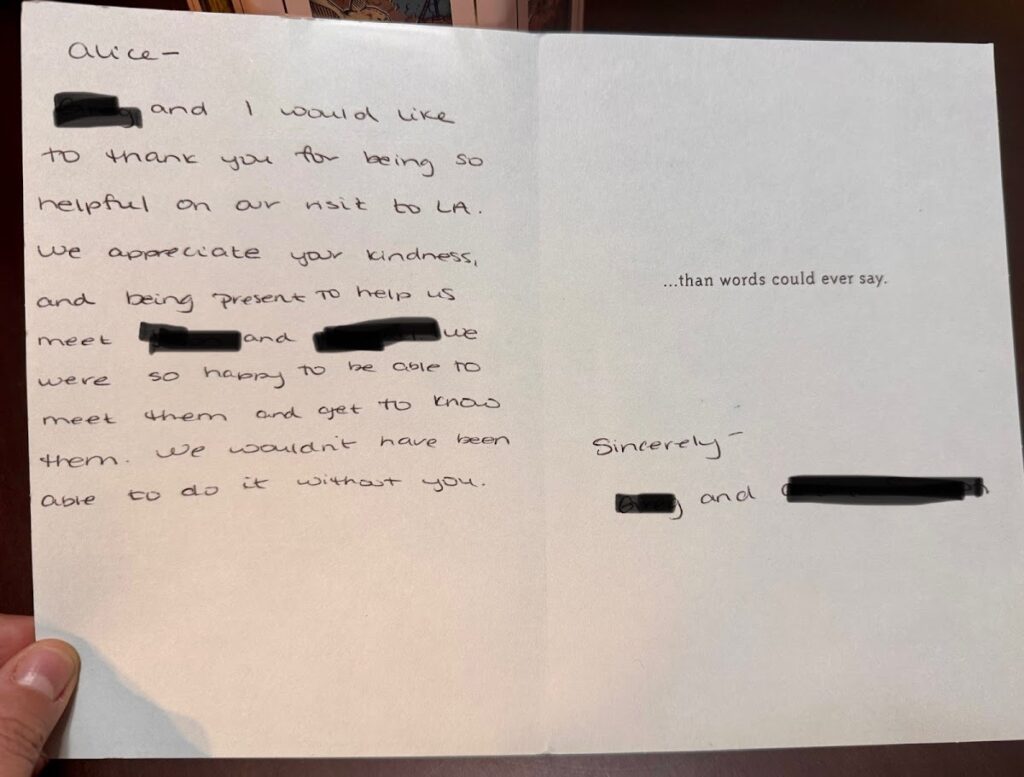 Alice-
and I would like
to thank you for being so
helpful on our visit to LA.
We appreciate your kindness,
and being present to help us
meet and we
were so happy to be able to
meet them and get to know
them. We wouldn't have been
able to do it without you.
...than words could ever say.
Sincerely-
and